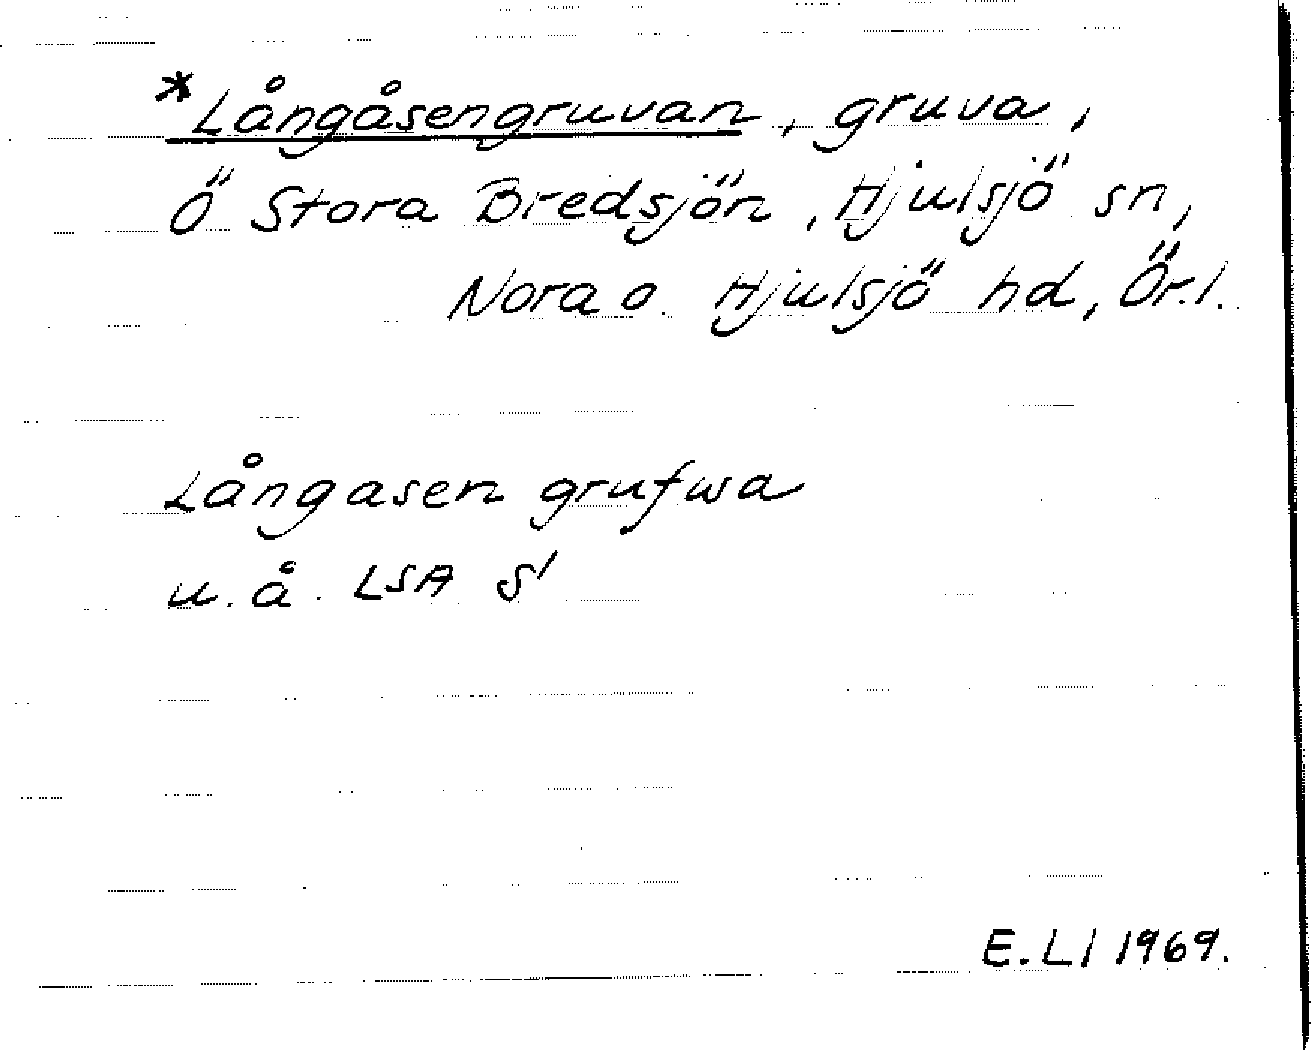 *Långåsengruvan, gruva,
Ö Stora Bredsjön, Hjulsjö sn,
Nora o. Hjulsjö hd, Ör.l.
Långasen grufwa
u.å. LSA S'
E.Ll 1969.